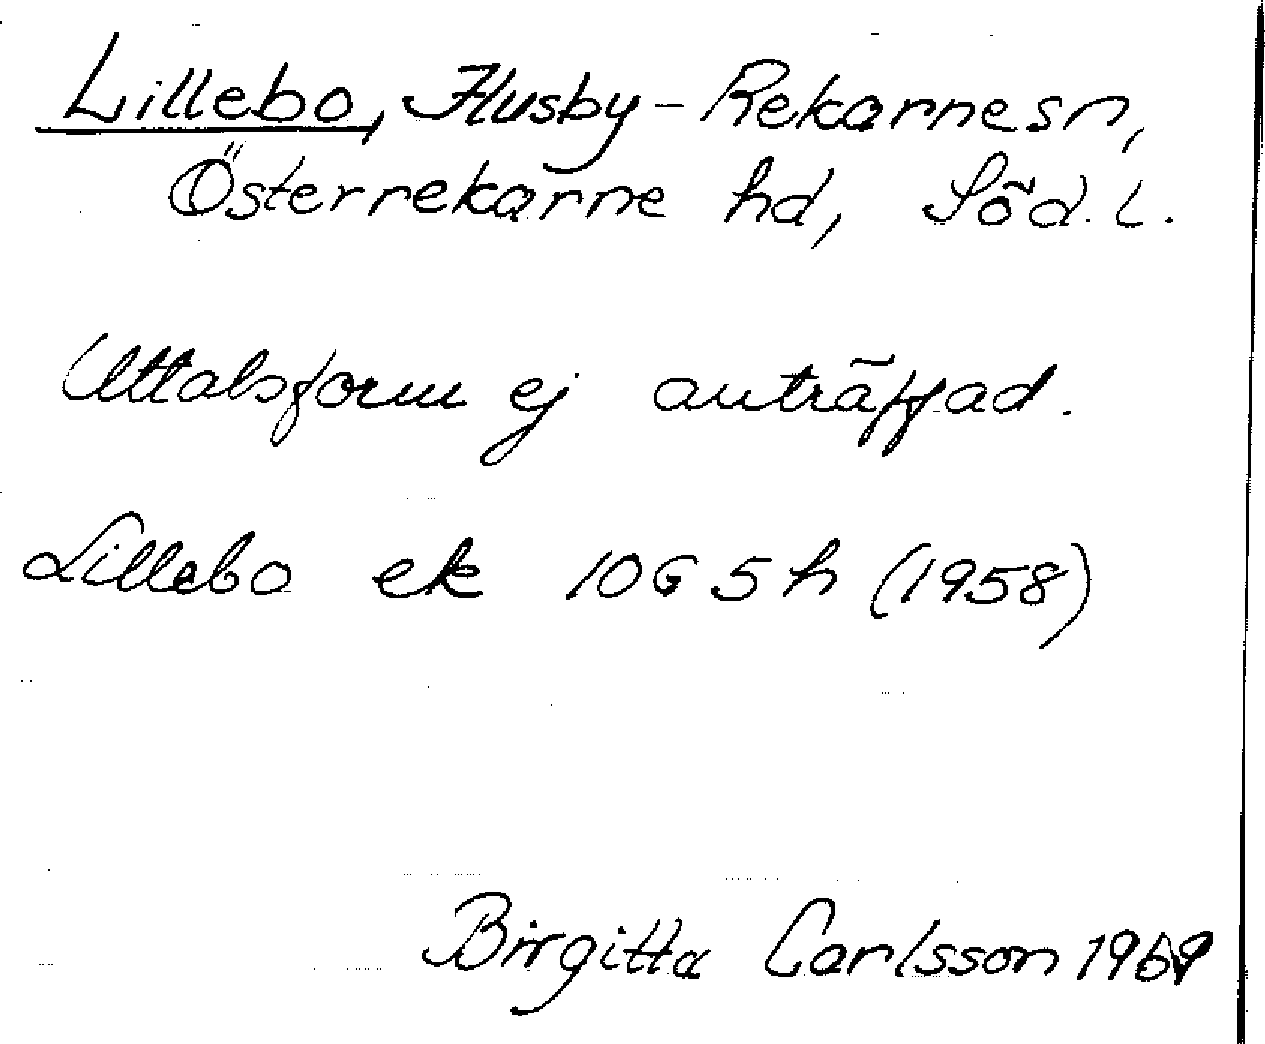 Lillebo, Husby-Rekarne sn,
Österrekarne hd, Söd. l.
Uttalsform ej anträffad.
Lillebo ek 10G 5h (1958)
Birgitta Carlsson 1969